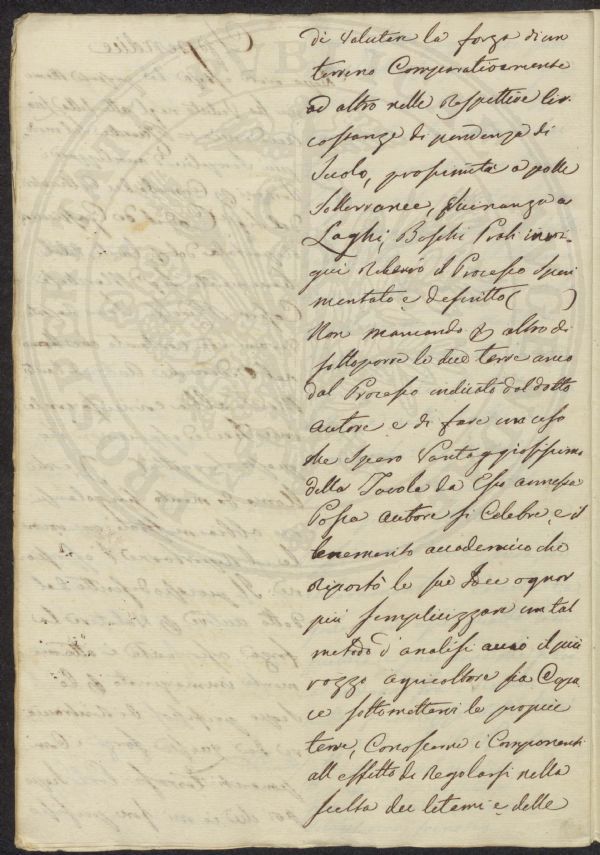 di valutare la forza di un
terreno Comparativamente
ad altro nelle Respettive Cir-
costanze di pendenza di
Suolo, prossimità a polle
Sotterranee, Vicinanza a
Laghi, Boschi Prati
qui il Processo Speri
mentato e descritto ( )
Non mancando di
sottoporre le due terre anco
dal Processo indicato dal dotto
autore e di fare un uso
che Spero Vantaggiosissimo
della Tavola da Esso annessa
Possa autore si Celebre, e il
benemerito accademico che
Riportò le sue Idee ognor
più semplicizzare un tal
metodo d'analisi il più
rozzo agricoltore sia Capa
ce sottomettervi le proprie
terre, Conoscerne i Componenti
all effetto di Regolarsi nella
scelta dei letami e delle